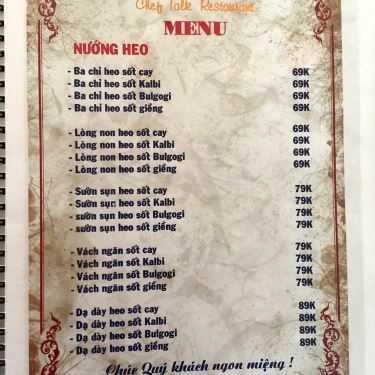 Chef Talk Restaurant
MENU
NƯỚNG HEO
- Ba chỉ heo sốt cay 69K
- Ba chỉ heo sốt Kalbi 69K
- Ba chỉ heo sốt Bulgogi 69K
- Ba chỉ heo sốt giềng 69K
- Lòng non heo sốt cay 69K
- Lòng non heo sốt Kalbi 69K
- Lòng non heo sốt Bulgogi 69K
- Lòng non heo sốt giềng 69K
- Sườn sụn heo sốt cay 79K
- Sườn sụn heo sốt Kalbi 79K
- sườn sụn heo sốt Bulgogi 79K
- sườn sụn heo sốt giềng 79K
- Vách ngăn sốt cay 79K
- Vách ngăn sốt Kalbi 79K
- Vách ngăn sốt Bulgogi 79K
- Vách ngăn sốt giềng 79K
- Dạ dày heo sốt cay 89K
- Dạ dày heo sốt Kalbi 89K
- Dạ dày heo sốt Bulgogi 89K
- Dạ dày heo sốt giềng 89K
Chúc Quý khách ngon miệng !